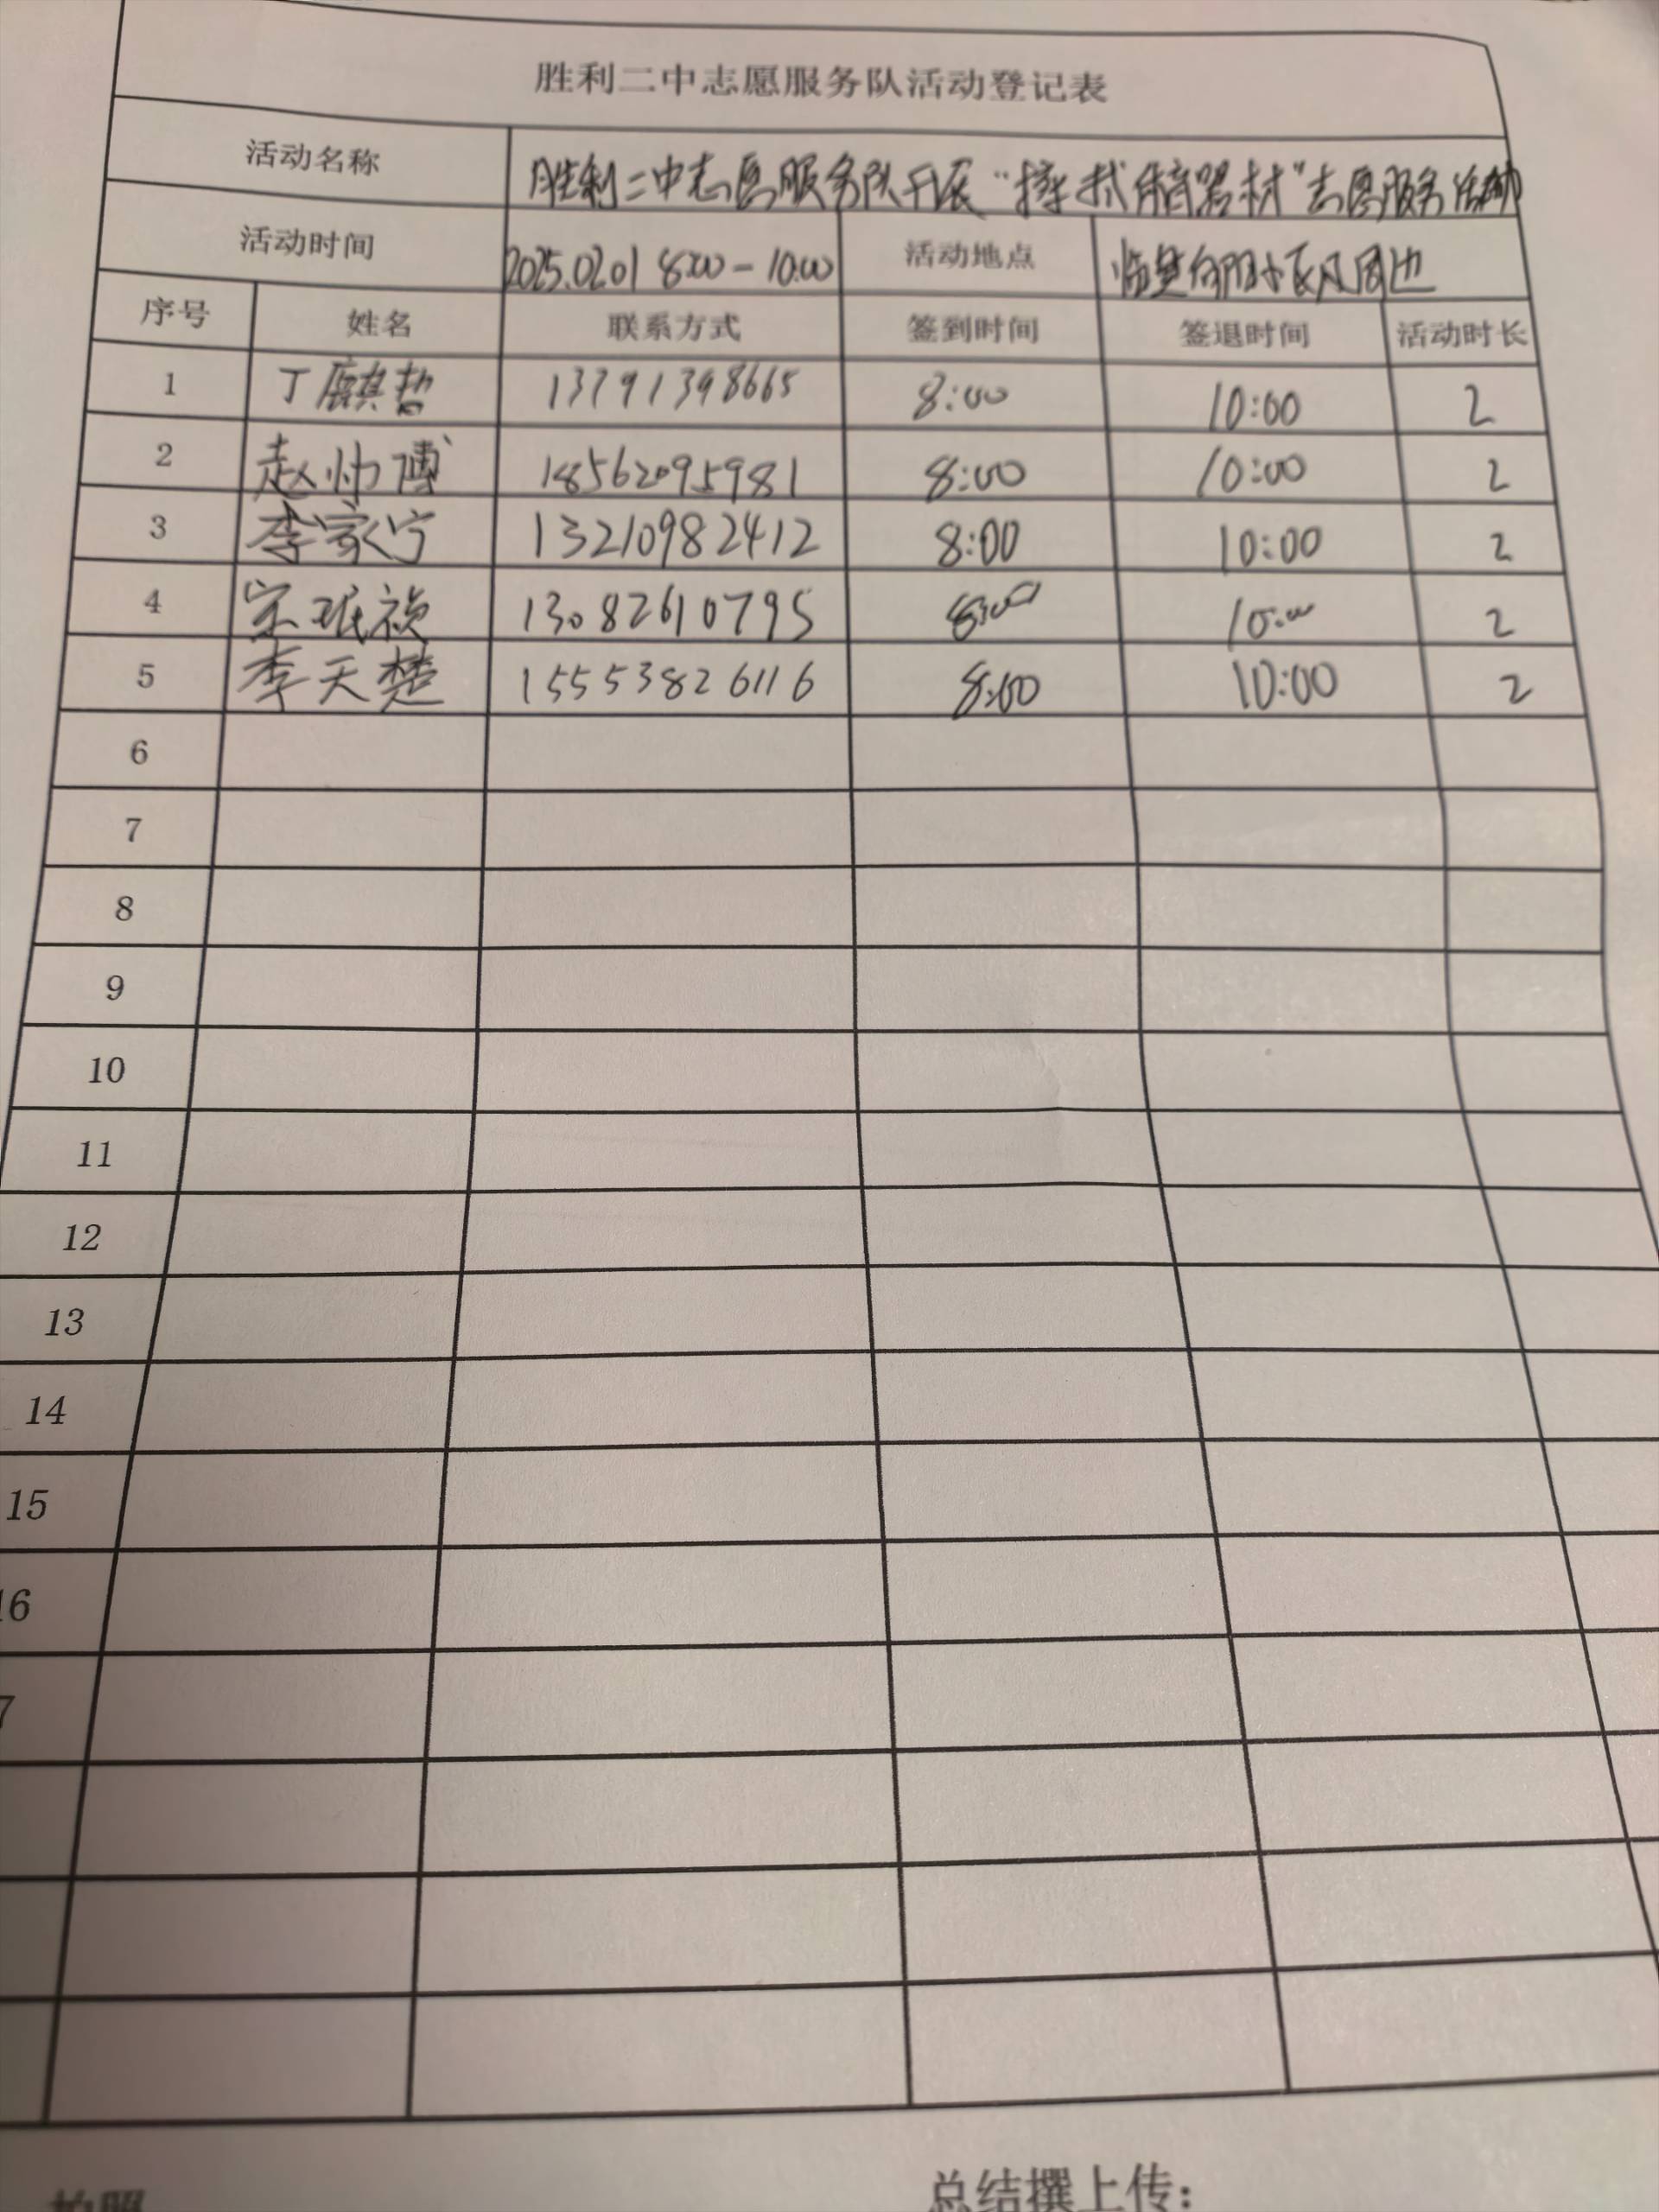 胜利二中志愿服务队活动登记表
活动名称 胜利二中志愿服务队开展“擦拭健身器材”志愿服务活动
活动时间 2025.02.01 8:00-10:00 活动地点 临盘向阳小区及周边
序号 姓名 联系方式 签到时间 签退时间 活动时长
1 丁麒哲 13791398665 8:00 10:00 2
2 赵帅博 18562095981 8:00 10:00 2
3 李家宁 13210982412 8:00 10:00 2
4 宋珉祯 13082610795 8:00 10:00 2
5 李天楚 15553826116 8:00 10:00 2
6
7
8
9
10
11
12
13
14
15
16
7
拍照 总结撰上传：